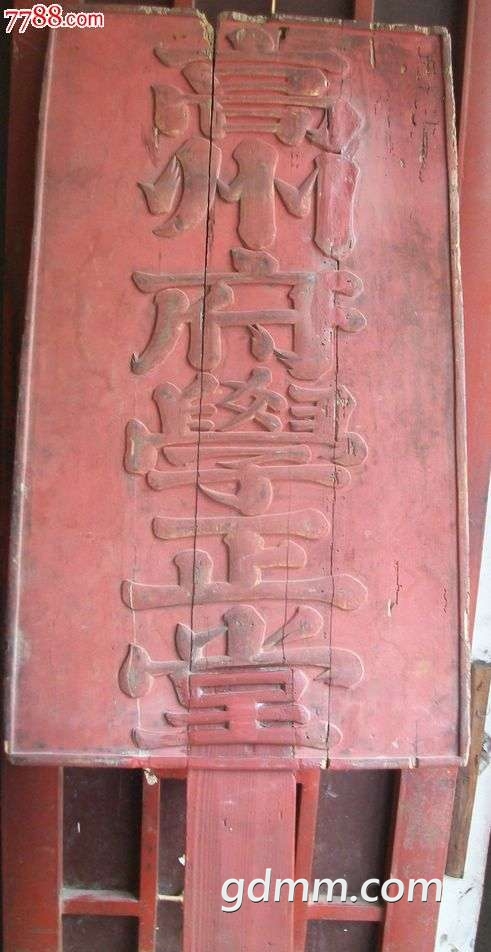 7788.com
高州府學正堂
gdmm.com